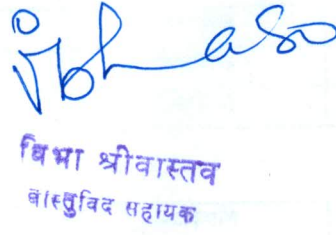 विभा श्रीवास्तव
वास्तुविद सहायक